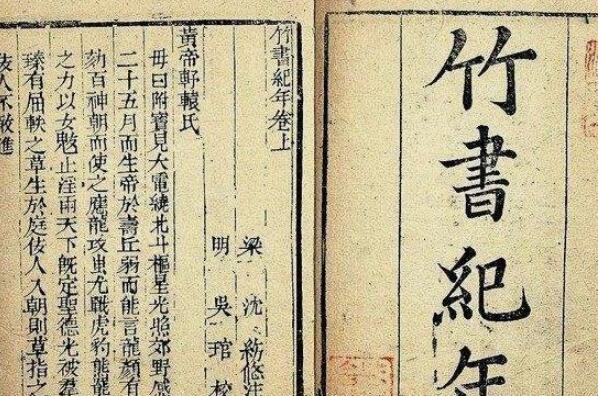 竹書紀年
竹書紀年卷上
梁 沈 約 注
明 吳 琯 校
黃帝軒轅氏
母曰附寶見大電繞北斗樞星光照郊野感
二十五月而生帝於壽丘弱而能言龍顏有
劾百神朝而使之應龍攻蚩尤戰虎豹熊羆
之力以女魃止淫雨天下旣定聖德光被羣
臻有屈軼之草生於庭佞人入朝則草指之
佞人不敢進